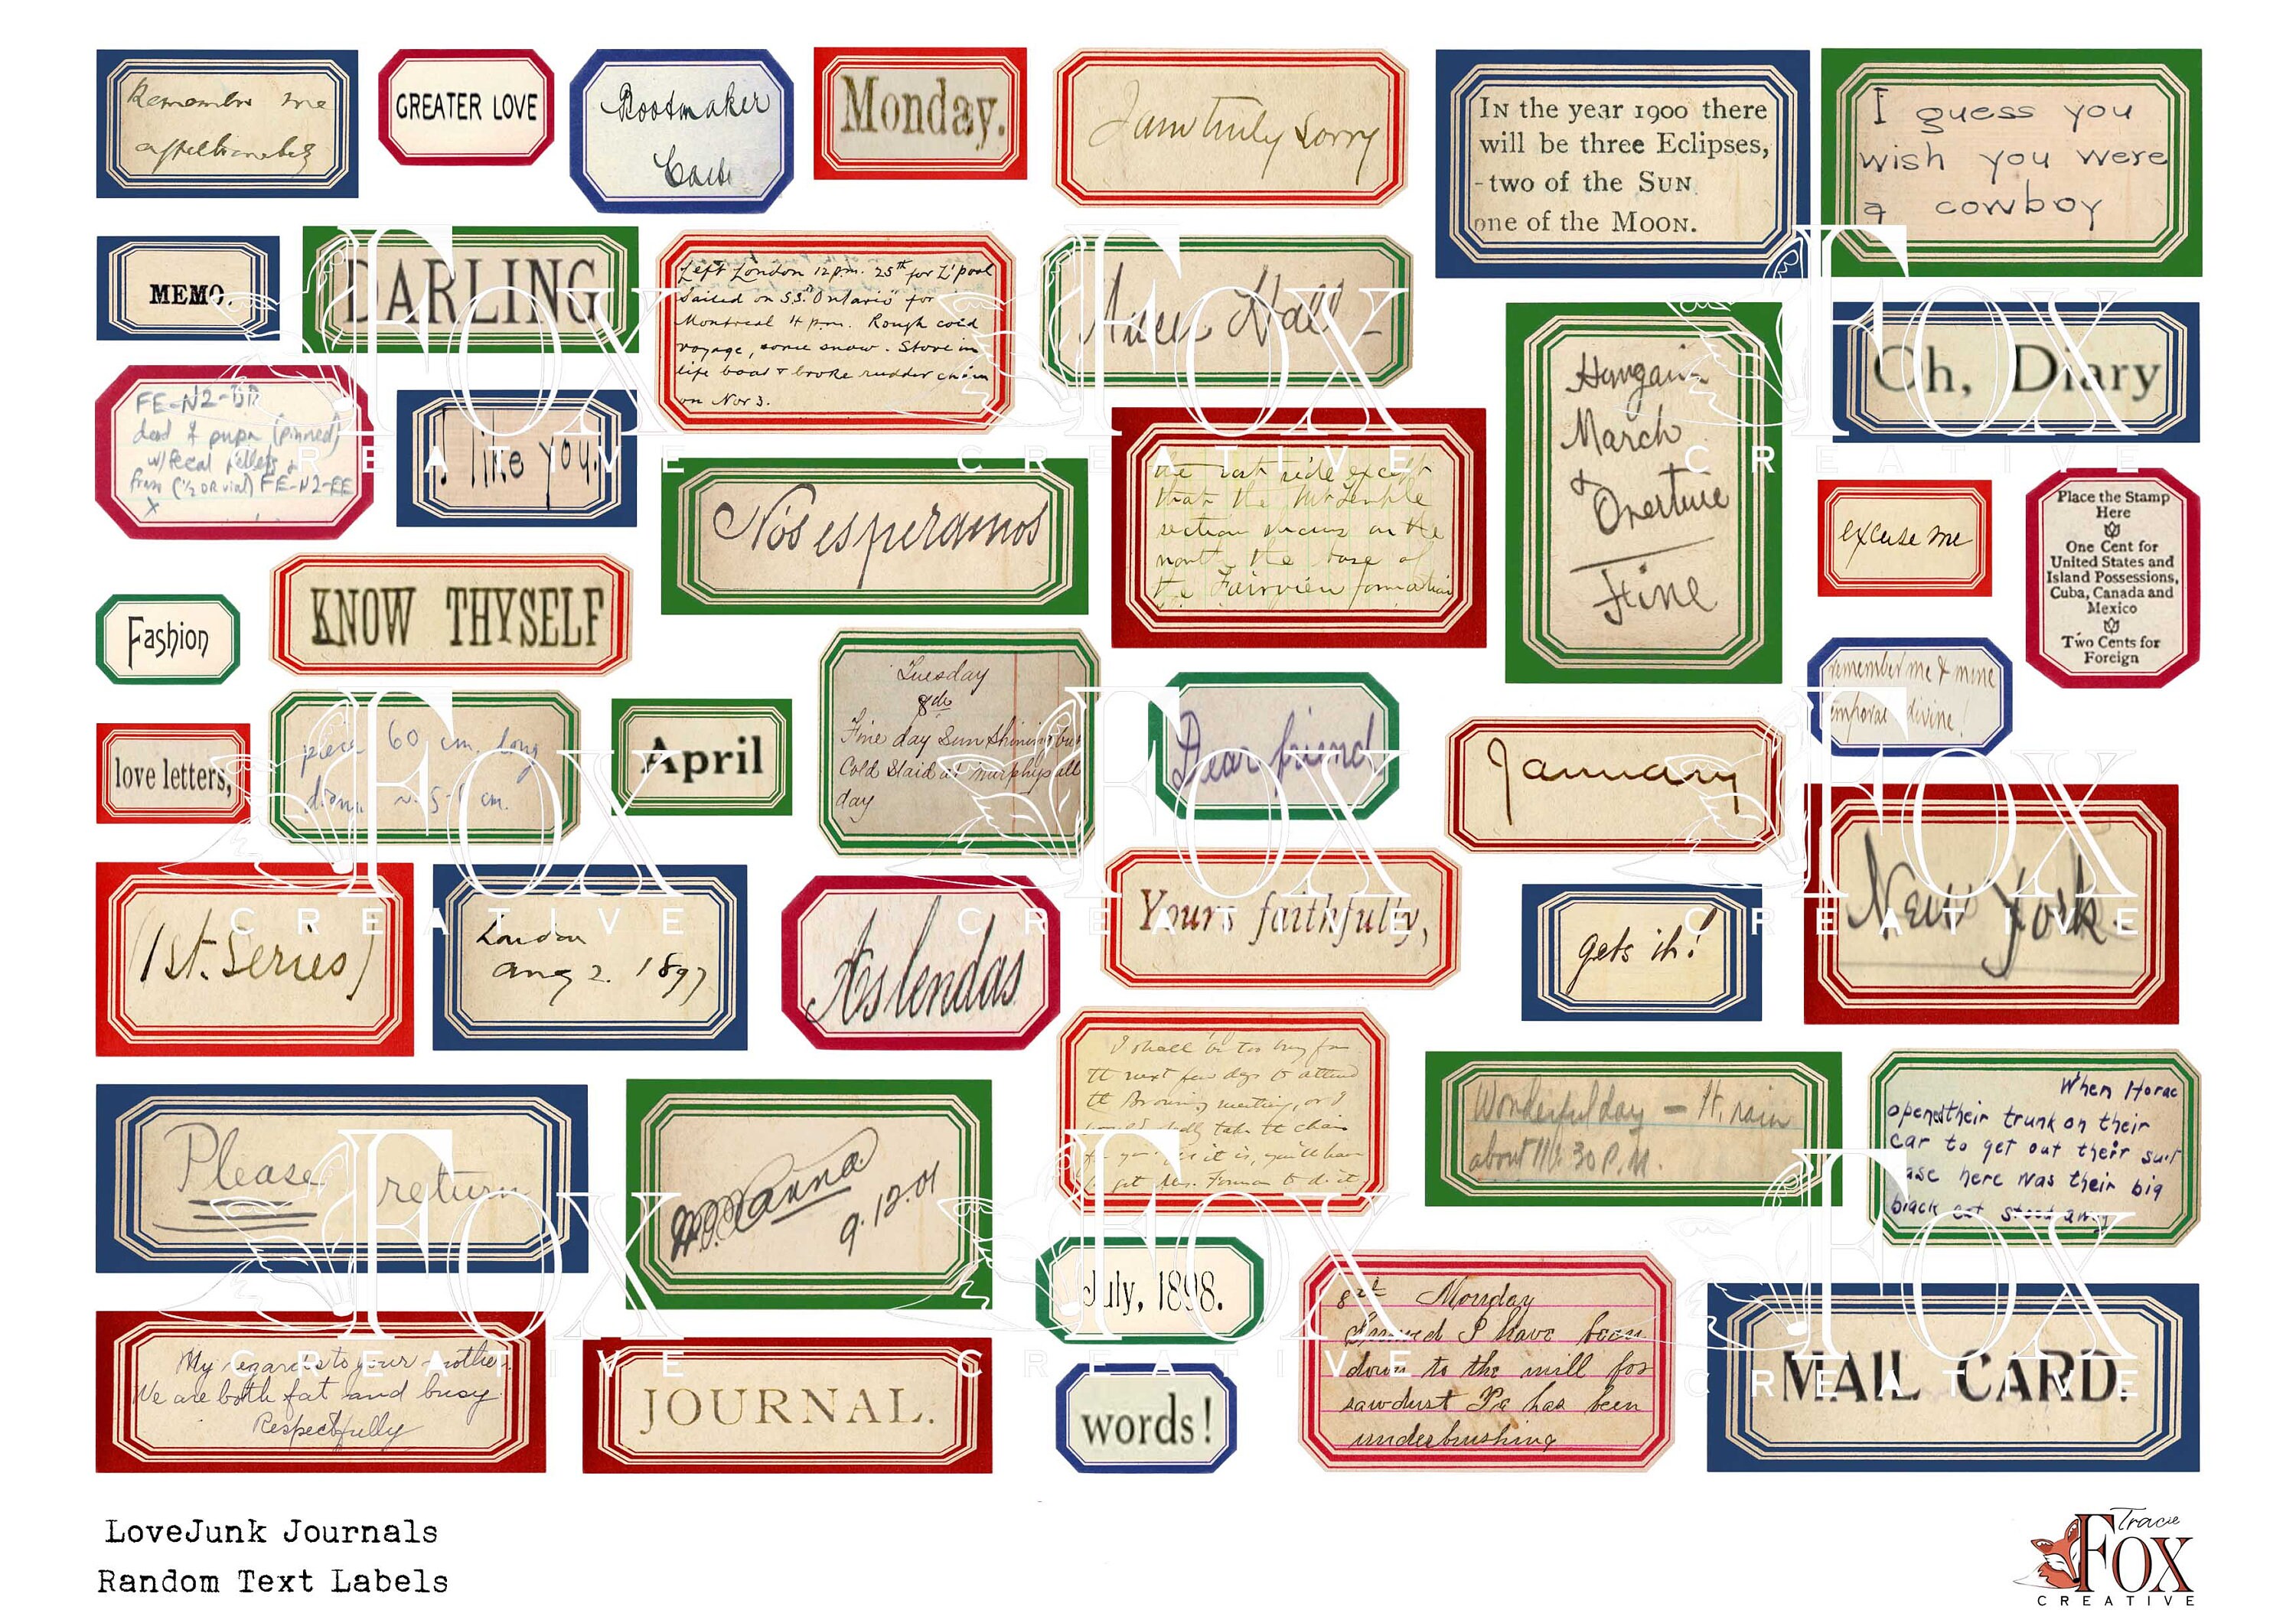 Remember me
affectionately
GREATER LOVE
Bootmaker
Monday.
I am truly sorry
IN the year 1900 there
will be three Eclipses,
-two of the SUN
one of the MOON.
I guess you
wish you were
a cowboy
MEMO.
DARLING
Left London 12 p.m. 25th for L'pool
Sailed on S.S. "Ontario" for
Montreal 4 p.m. Rough cold
voyage, some snow. Stove in
life boat & broke rudder chain
on Nov 3.
Hall -
Hungarian
March
&
Overture
Fine
Oh, Diary
FE-N2-
dead & pupa (pinned)
w/fecal pellets &
frass (1/2 DR vial) FE-N2-EE
X
I like you.
Nos esperamos
the east side except
that the Mt Temple
section on the
north the base of
the Fairview formation
excuse me
Place the Stamp
Here
One Cent for
United States and
Island Possessions,
Cuba, Canada and
Mexico
Two Cents for
Foreign
Fashion
KNOW THYSELF
remember me & mine
divine!
love letters,
piece 60 cm. long
cm.
April
Tuesday
8th
Fine day Sun Shining but
Cold Staid at Murphys all
day
Dear friend
January
New York.
(1st. Series)
London
Aug 2. 1897
As lendas
Yours faithfully,
gets it!
Please return
9.12.01
I shall be too busy for
the next few days to attend
the Browning meeting, or I
would gladly take the chair
for you. As it is, you'll have
to get Mrs. to do it
Wonderful day - Ht. rain
about 11.30 P.M.
When Horac
opened their trunk on their
car to get out their suit
ase here was their big
black cat stood away
My regards to your mother.
We are both fat and busy
Respectfully
JOURNAL.
July, 1898.
words!
8th Monday
I have been
down to the mill for
sawdust Pa has been
underbrushing
MAIL CARD.
LoveJunk Journals
Random Text Labels
Tracie
FOX
CREATIVE